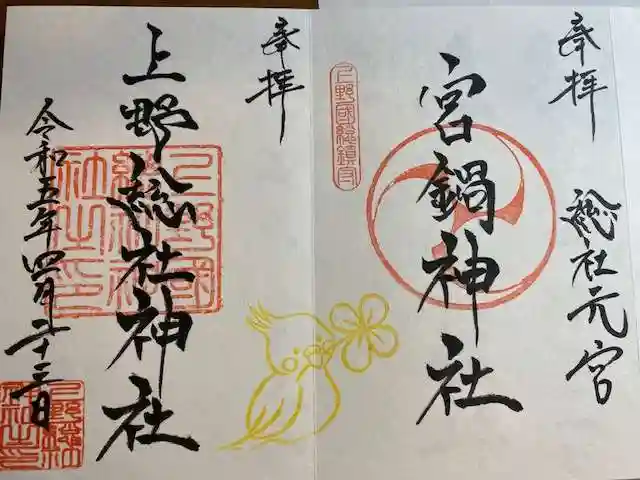 奉拝
総社元宮
宮鍋神社
上野國総鎮守
奉拝
上野総社神社
上野國総社神社之印
令和五年四月二十三日